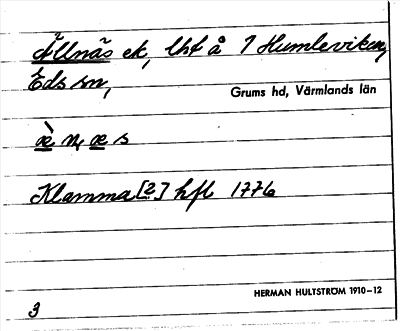 Ållnäs ek, lht å 1 Humleviken,
Eds sn,
Grums hd, Värmlands län
æ̀ n, æ s
Klamma[2] hfl 1776
HERMAN HULTSTRÖM 1910–12
3